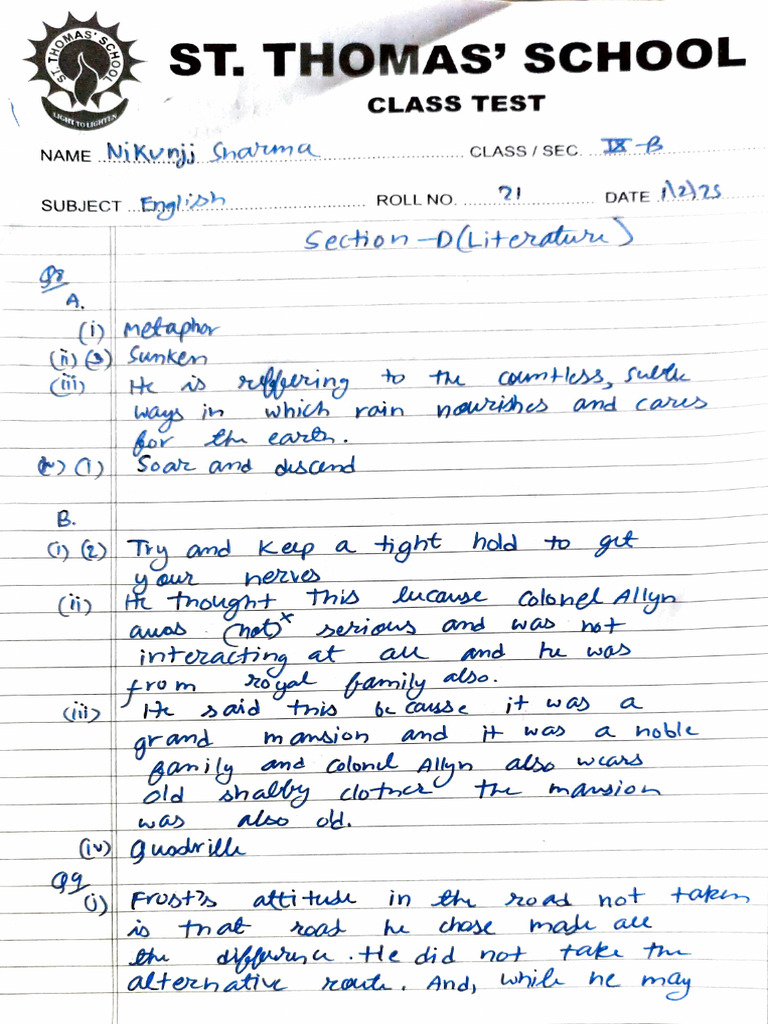 ST. THOMAS' SCHOOL
LIGHT TO LIGHTEN
ST. THOMAS' SCHOOL
CLASS TEST
NAME Nikunjj Sharma CLASS / SEC. IX-B
SUBJECT English ROLL NO. 21 DATE 1/2/25
Section-D(Literature)
Q8
A.
(i) Metaphor
(ii) (3) Sunken
(iii) He is reffering to the countless, subtle
ways in which rain nourishes and cares
for the earth.
(1) Soar and descend
B.
(i) (2) Try and keep a tight hold to get
your nerves
(ii) He thought this because Colonel Allyn
was (not)x serious and was not
interacting at all and he was
from royal family also.
(iii) He said this because it was a
grand mansion and it was a noble
family and Colonel Allyn also wears
old shabby clothes the mansion
was also old.
(iv) Quadrille
Q9
(i) Frost's attitude in the road not taken
is that road he chose made all
the difference. He did not take the
alternative route. And, while he may